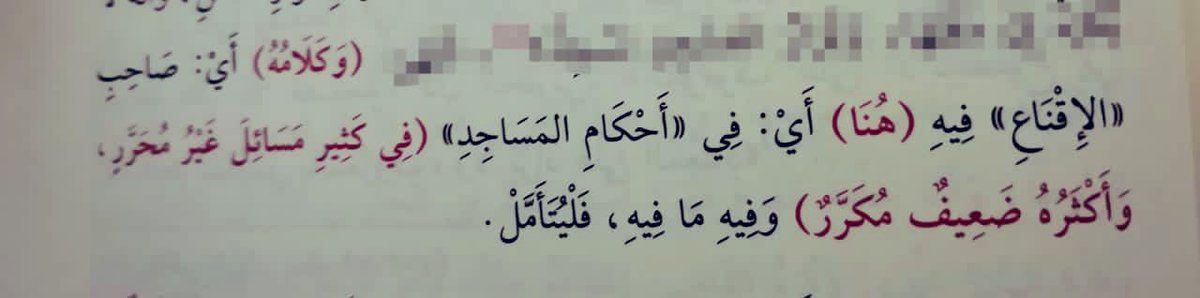 (وَكَلَامُهُ) أَيْ: صَاحِبِ
«الإِقْنَاعِ» فِيهِ (هُنَا) أَيْ: فِي «أَحْكَامِ المَسَاجِدِ» (فِي كَثِيرِ مَسَائِلَ غَيْرُ مُحَرَّرٍ،
وَأَكْثَرُهُ ضَعِيفٌ مُكَرَّرٌ) وَفِيهِ مَا فِيهِ، فَلْيُتَأَمَّلْ.